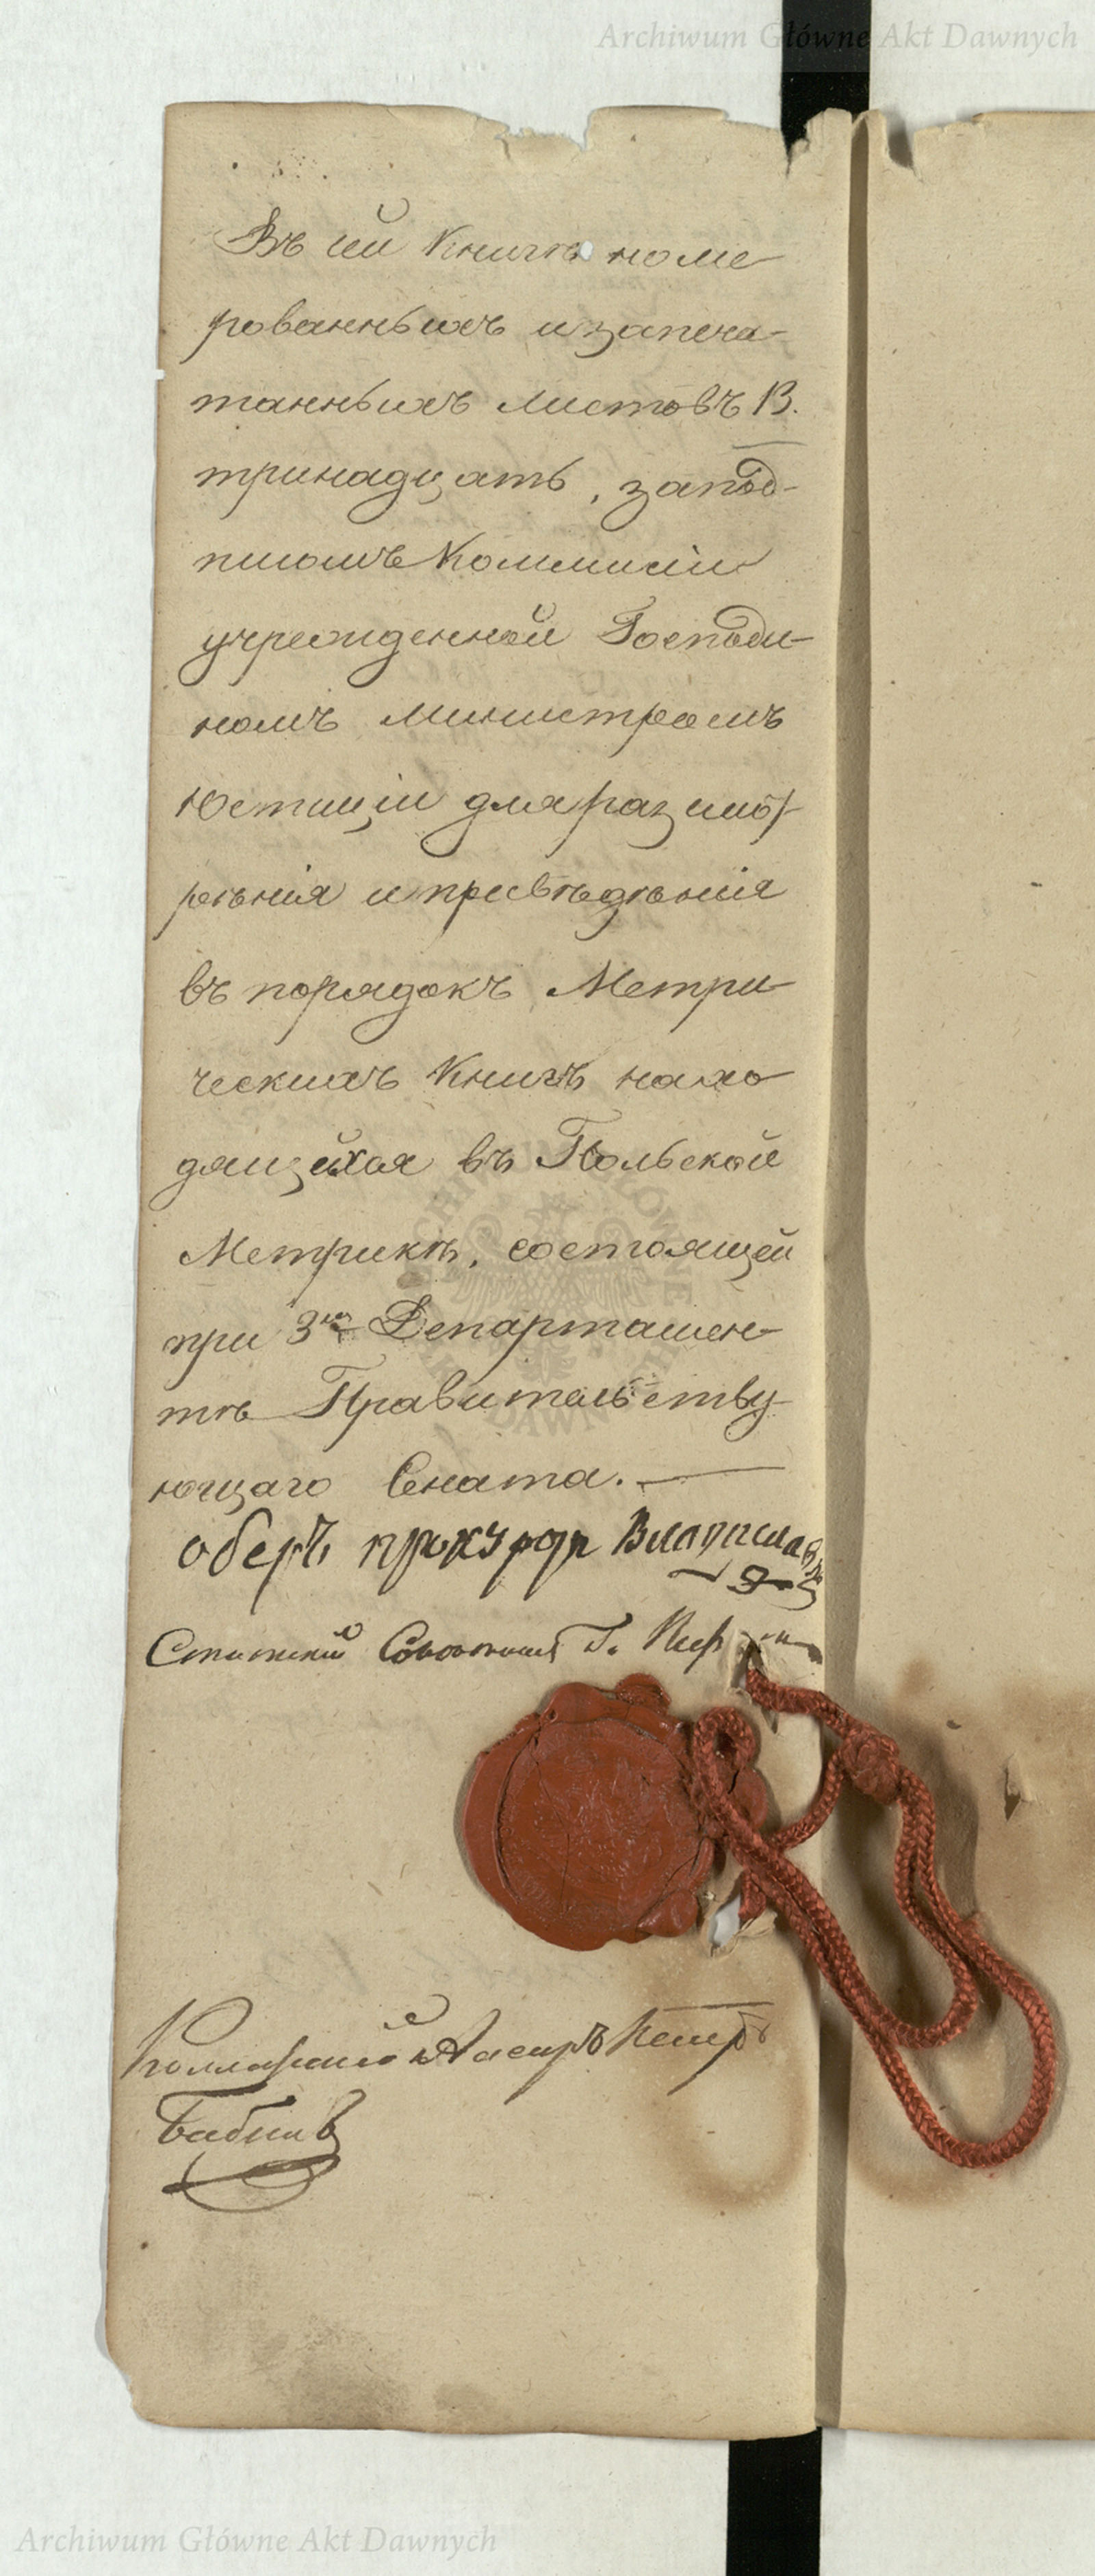 Archiwum Główne Akt Dawnych
Въ сей Книгѣ номе
рованныхъ и запеча-
танныхъ листовъ 13.
тринадцать, запод-
писомъ Коммисіи
учрежденной Господи-
номъ Министромъ
Юстиціи для разсмот-
рѣнія и привѣдѣнія
въ порядокъ Метри-
ческихъ Книгъ нахо
дящихся въ Польской
Метрикѣ, состоящей
при 3мъ Департамен-
тѣ Правительству-
ющаго Сената.
оберъ прокурор
Статский Советникъ Г.
Коллежской Асесоръ Петръ
Archiwum Główne Akt Dawnych